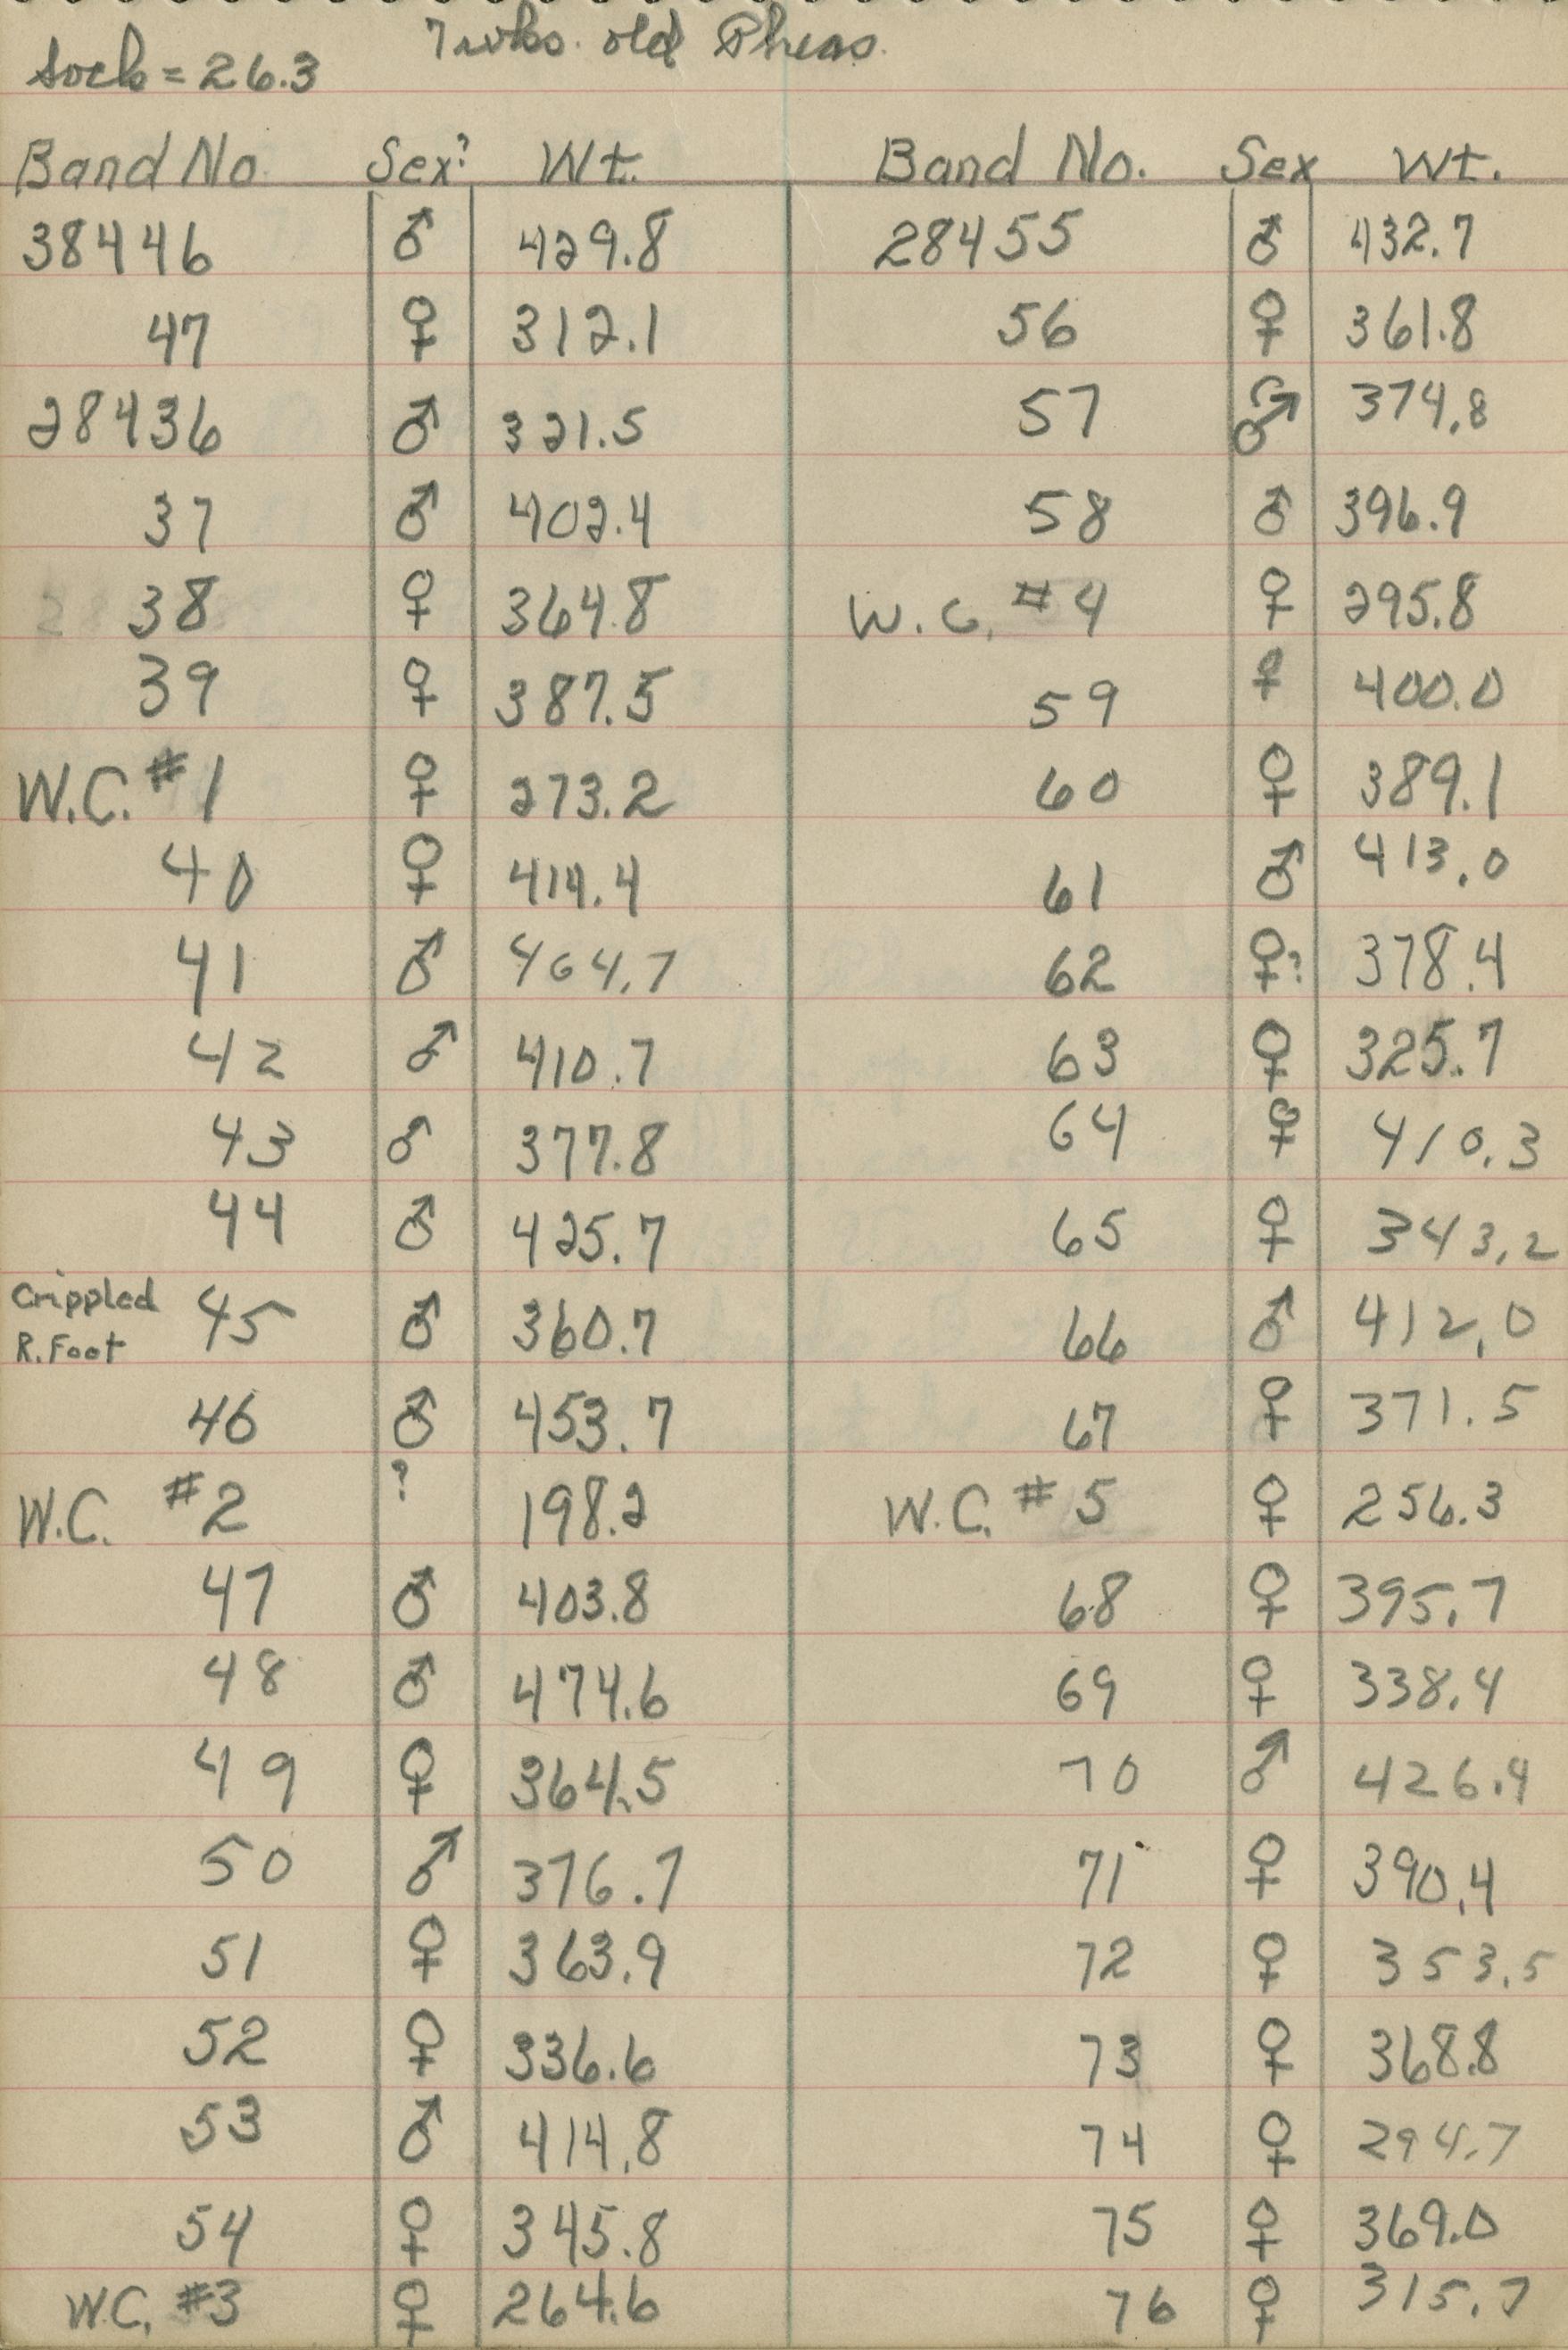 7 wks. old Pheas.
Sock = 26.3
Band No. Sex? Wt.
38446 ♂ 429.8
47 ♀ 312.1
28436 ♂ 321.5
37 ♂ 402.4
38 ♀ 364.8
39 ♀ 387.5
W.C. #1 ♀ 273.2
40 ♀ 414.4
41 ♂ 464.7
42 ♂ 410.7
43 ♂ 377.8
44 ♂ 425.7
Crippled R. Foot 45 ♂ 360.7
46 ♂ 453.7
W.C. #2 ? 198.2
47 ♂ 403.8
48 ♂ 474.6
49 ♀ 364.5
50 ♂ 376.7
51 ♀ 363.9
52 ♀ 336.6
53 ♂ 414.8
54 ♀ 345.8
W.C. #3 ♀ 264.6
Band No. Sex Wt.
28455 ♂ 432.7
56 ♀ 361.8
57 ♂ 374.8
58 ♂ 396.9
W.C. #4 ♀ 295.8
59 ♀ 400.0
60 ♀ 389.1
61 ♂ 413.0
62 ♀? 378.4
63 ♀ 325.7
64 ♀ 410.3
65 ♀ 343.2
66 ♂ 412.0
67 ♀ 371.5
W.C. #5 ♀ 256.3
68 ♀ 395.7
69 ♀ 338.4
70 ♂ 426.4
71 ♀ 390.4
72 ♀ 353.5
73 ♀ 368.8
74 ♀ 294.7
75 ♀ 369.0
76 ♀ 315.7